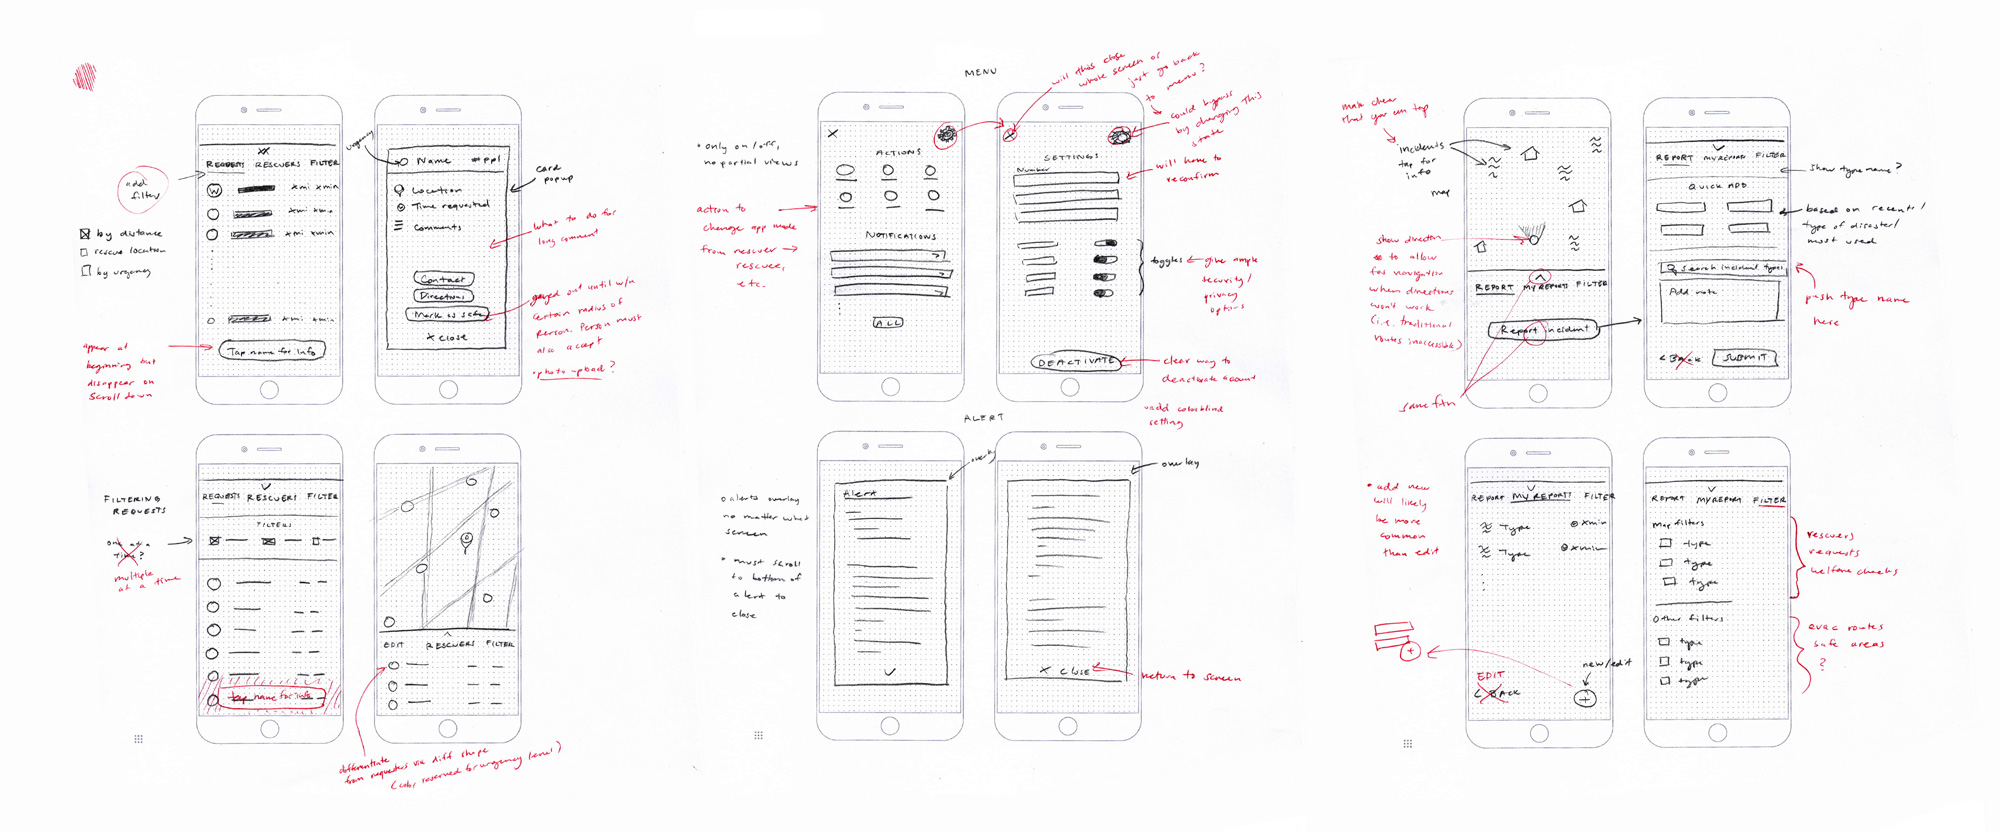 add
filter
by distance
rescue location
by urgency
appear at
beginning but
disappear on
scroll down
REQUESTS RESCUERS FILTER
W
xmi xmin
xmi xmin
xmi xmin
xmi xmin
Tap name for info
urgency
Name #ppl
Location
Time requested
Comments
Contact
Directions
Mark as safe
X close
card
popup
what to do for
long comment
grayed out until w/n
certain radius of
person. Person must
also accept
• photo upload?
FILTERING
REQUESTS
one at a
time?
multiple
at a time
REQUESTS RESCUERS FILTER
FILTERS
Tap name for info
EDIT RESCUERS FILTER
differentiate
from requesters via diff shape
(color reserved for urgency level)
MENU
• only on/off,
no partial views
action to
change app mode
from rescuer →
rescuee,
etc.
X
ACTIONS
NOTIFICATIONS
ALL
will this close
whole screen or
just go back
to menu?
could bypass
by changing this
state
X
SETTINGS
Number
DEACTIVATE
will have to
reconfirm
toggles
give ample
security/
privacy
options
clear way to
deactivate account
add colorblind
setting
ALERT
alerts overlay
no matter what
screen
• must scroll
to bottom of
alert to
close
overlay
Alert
overlay
X CLOSE
return to screen
make clear
that you can tap
incidents
tap for
info
map
show direction
to allow
for navigation
when directions
won't work
(i.e. traditional
routes inaccessible)
same fxn
REPORT MY REPORTS FILTER
Report incident
REPORT MY REPORTS FILTER
QUICK ADD
Search incident types
Add note
< BACK SUBMIT
show type name?
based on recents/
type of disaster/
most used
push type name
here
• add new
will likely
be more
common
than edit
+
REPORT MY REPORTS FILTER
Type xmin
Type xmin
new/edit
EDIT
< BACK
+
REPORT MY REPORTS FILTER
Map filters
type
type
type
Other filters
type
type
type
rescuers
requests
welfare checks
evac routes
safe areas
?